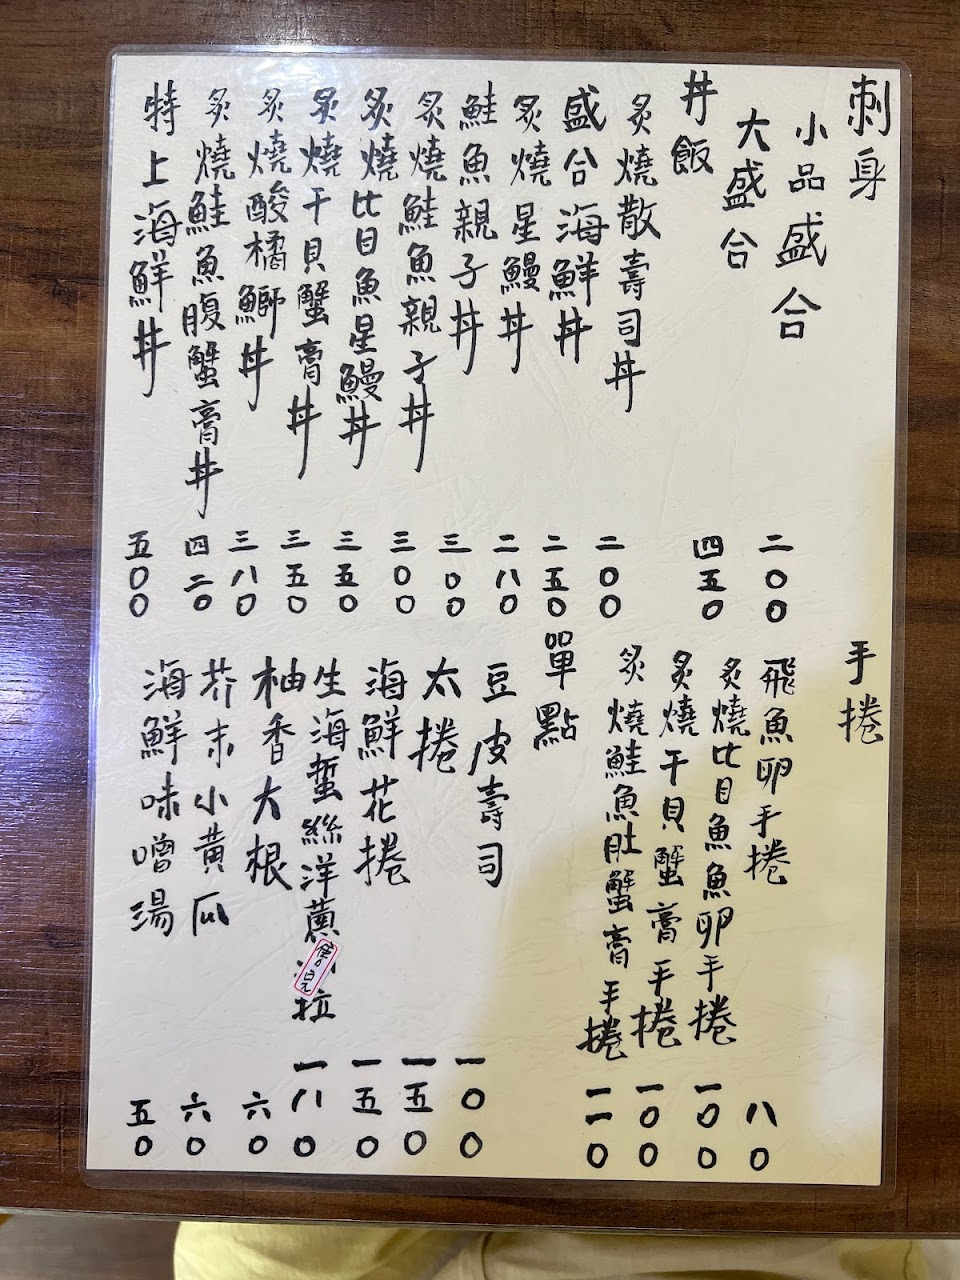 刺身
小品盛合 二〇〇
大盛合 四五〇
丼飯
炙燒散壽司丼 二〇〇
盛合海鮮丼 二五〇
炙燒星鰻丼 二八〇
鮭魚親子丼 三〇〇
炙燒鮭魚親子丼 三〇〇
炙燒比目魚星鰻丼 三五〇
炙燒干貝蟹膏丼 三五〇
炙燒酸橘鰤丼 三八〇
炙燒鮭魚腹蟹膏丼 四二〇
特上海鮮丼 五〇〇
手捲
飛魚卵手捲 八〇
炙燒比目魚魚卵手捲 一〇〇
炙燒干貝蟹膏手捲 一〇〇
炙燒鮭魚肚蟹膏手捲 一一〇
單點
豆皮壽司 一〇〇
太捲 一五〇
海鮮花捲 一五〇
生海蜇絲洋蔥拉 一八〇
柚香大根 六〇
芥末小黃瓜 六〇
海鮮味噌湯 五〇